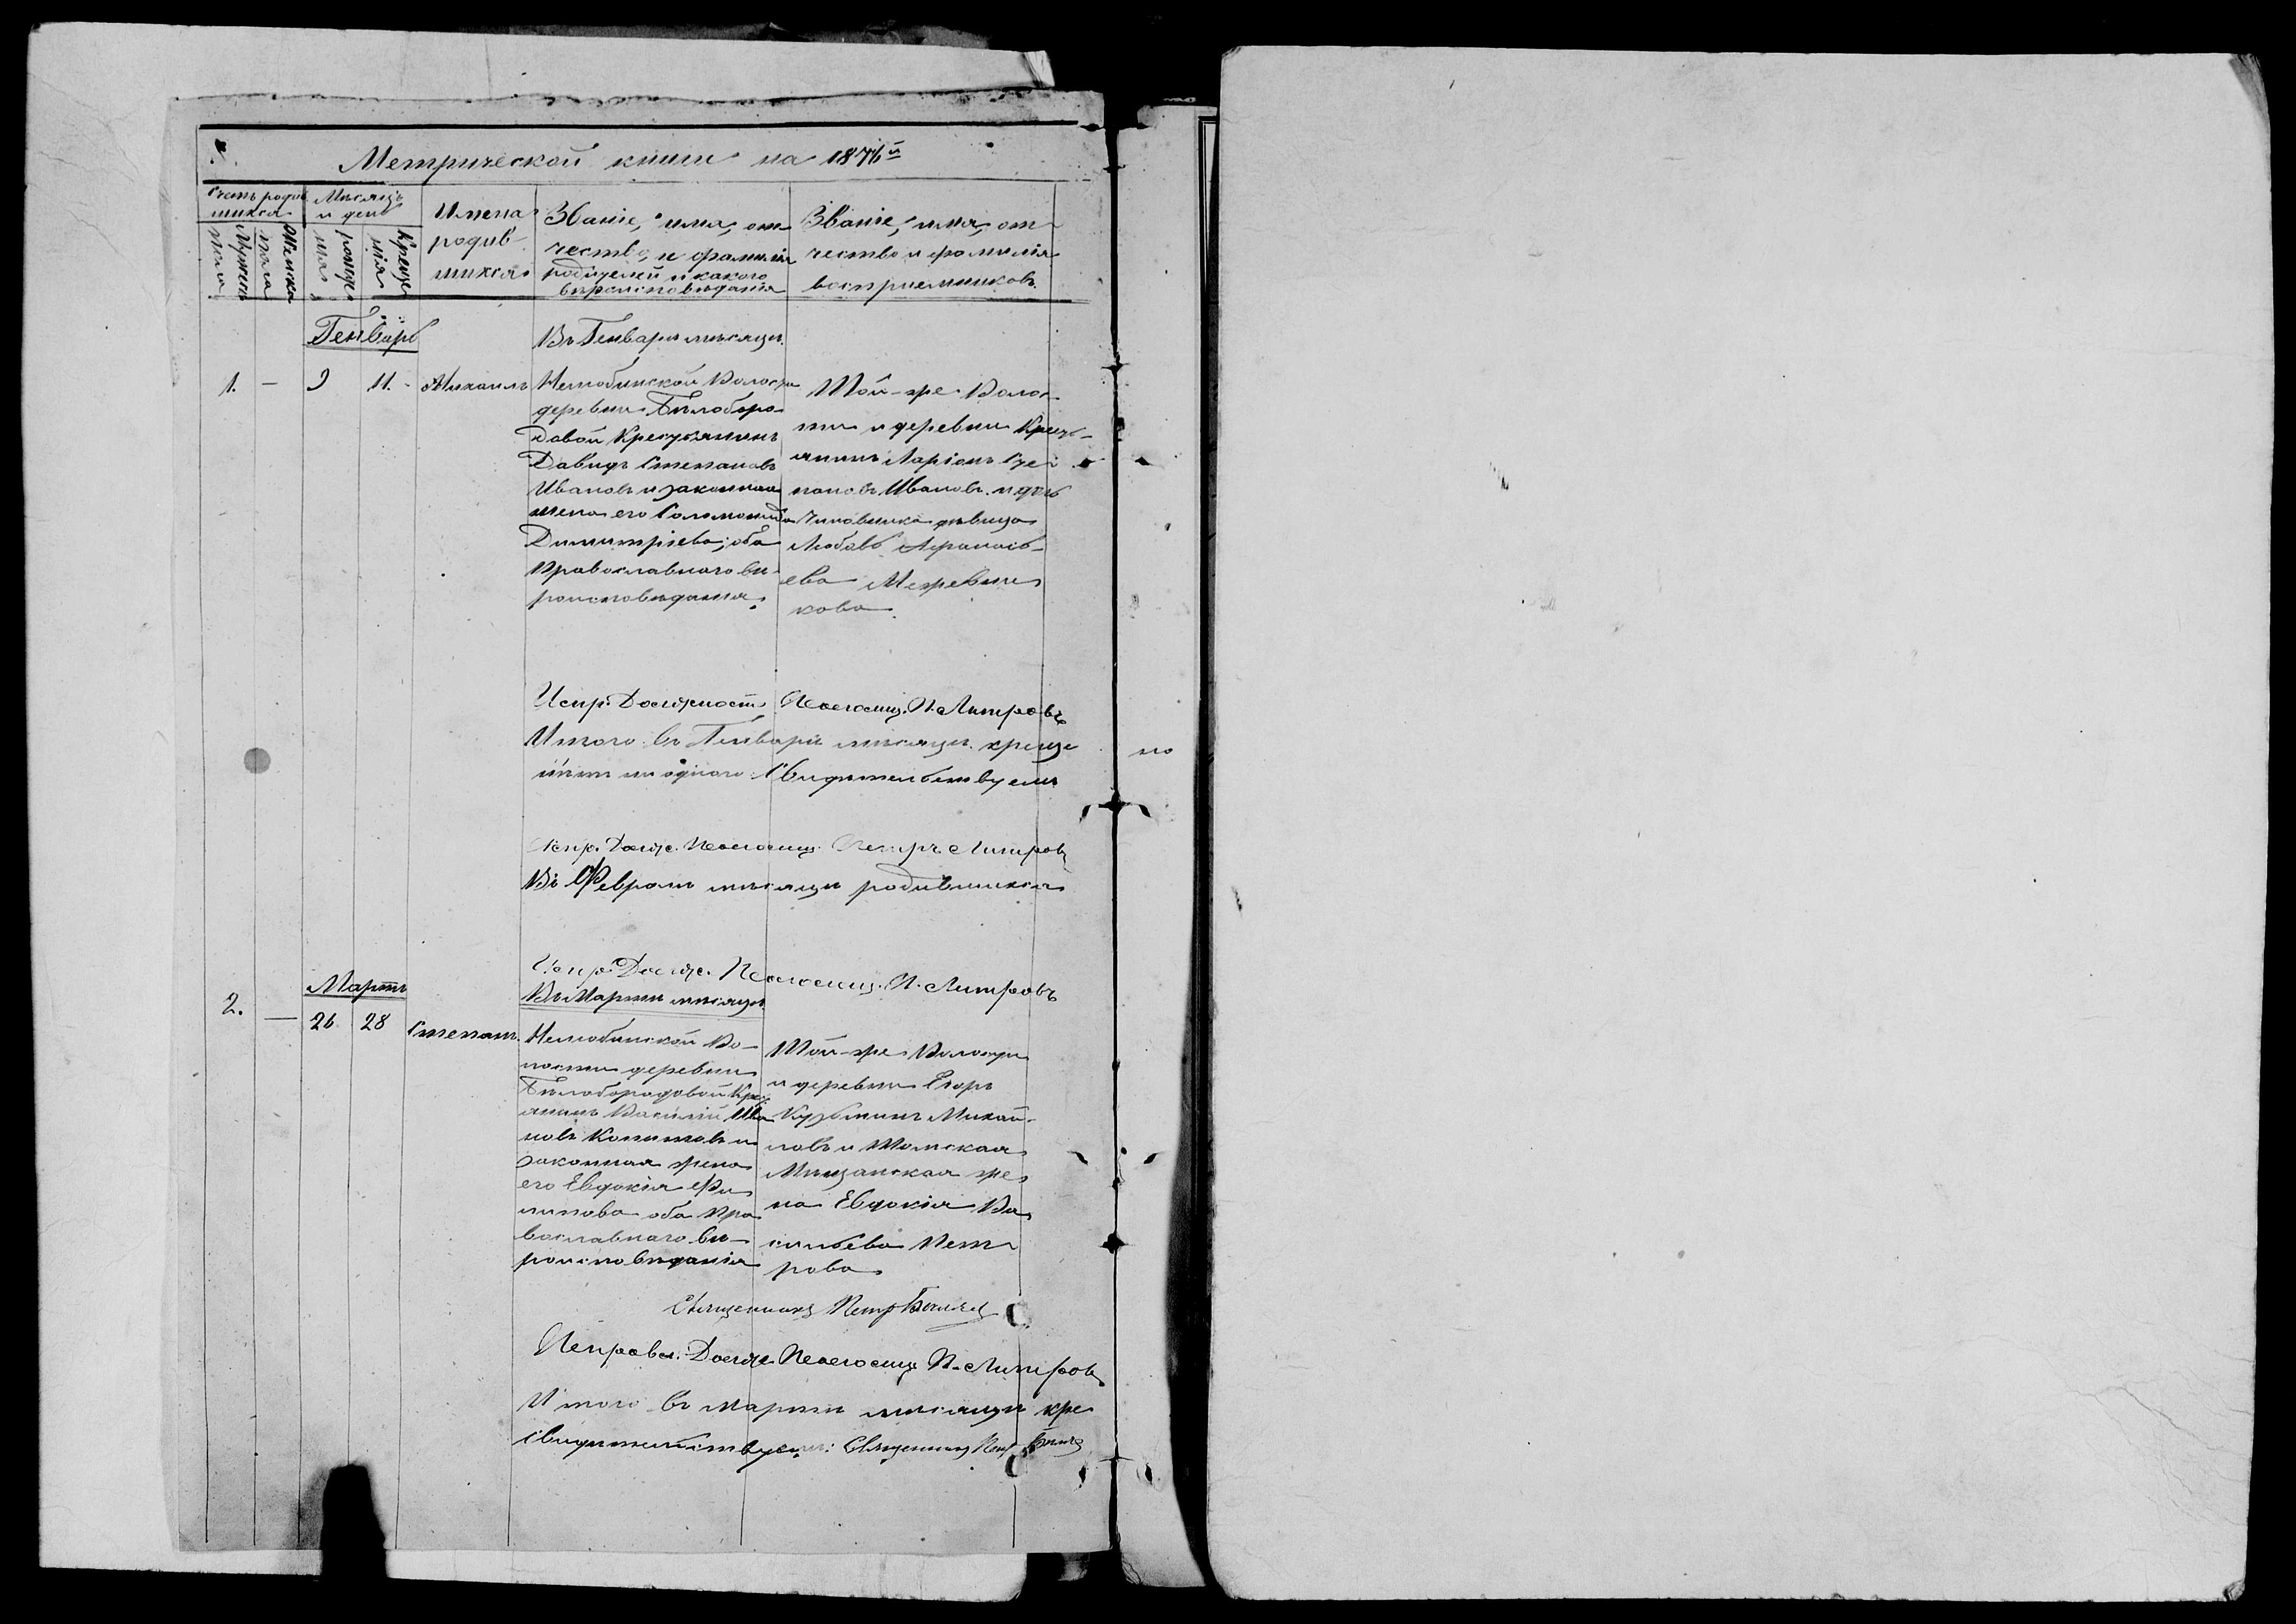 Метрической книги на 1876й
Счетъ родив
шихся
Мѣсяцъ
и день
Мужеска
пола
Женска
пола
рожде
нія
Креще
нія
Имена
родив
шихся
Званіе, имя, от
чество, и фамилія
родителей и какого
вѣроисповѣданія
Званіе, имя, от
чество и фамилія
воспріемниковъ.
Генварь
Въ Генварѣ мѣсяцѣ.
1. — 9 11. - Михаилъ
Нелюбинской Волости
деревни Бѣлоборо
довой Крестьянинъ
Давидъ Степановъ
Ивановъ и законная
жена его Соломонида
Димитріева; оба
Православнаго вѣ
роисповѣданія.
Той-же Волос
ти и деревни Кресть-
янинъ Ларіонъ Сте
пановъ Ивановъ. и дочь
Чиновника дѣвица
Любовь Афанась-
ева Межевни
кова.
Испр. Должност. Псаломщ. П. Лигировъ
Итого въ Генварѣ мѣсяцѣ креще
ни одного Свидѣтельствуемъ
Испр. Долж. Псаломщ. Петръ Лигировъ
Въ Февралѣ мѣсяцѣ родившихся
Испр. Долж. Псаломщ. П. Лигировъ
Мартъ
Въ Мартѣ мѣсяцѣ
2. — 26. 28 Степанъ.
Нелюбинской Во-
лости деревни
Бѣлобородовой Крес
янинъ Василій Ива
новъ Копытовъ и
законная жена
его Евдокія Фи
липова оба Пра
вославнаго вѣ-
роисповѣданія
Той-же Волости
и деревни Егоръ
Кузьминъ Михай-
ловъ и Томская
Мѣщанская же
на Евдокія Ва
сильева Пет
рова
Священникъ Петръ
Исправл. Долж. Псаломщ. П. Лигировъ
Итого въ мартѣ мѣсяцѣ кре
свидѣтельствуемъ: Священникъ Петръ
но